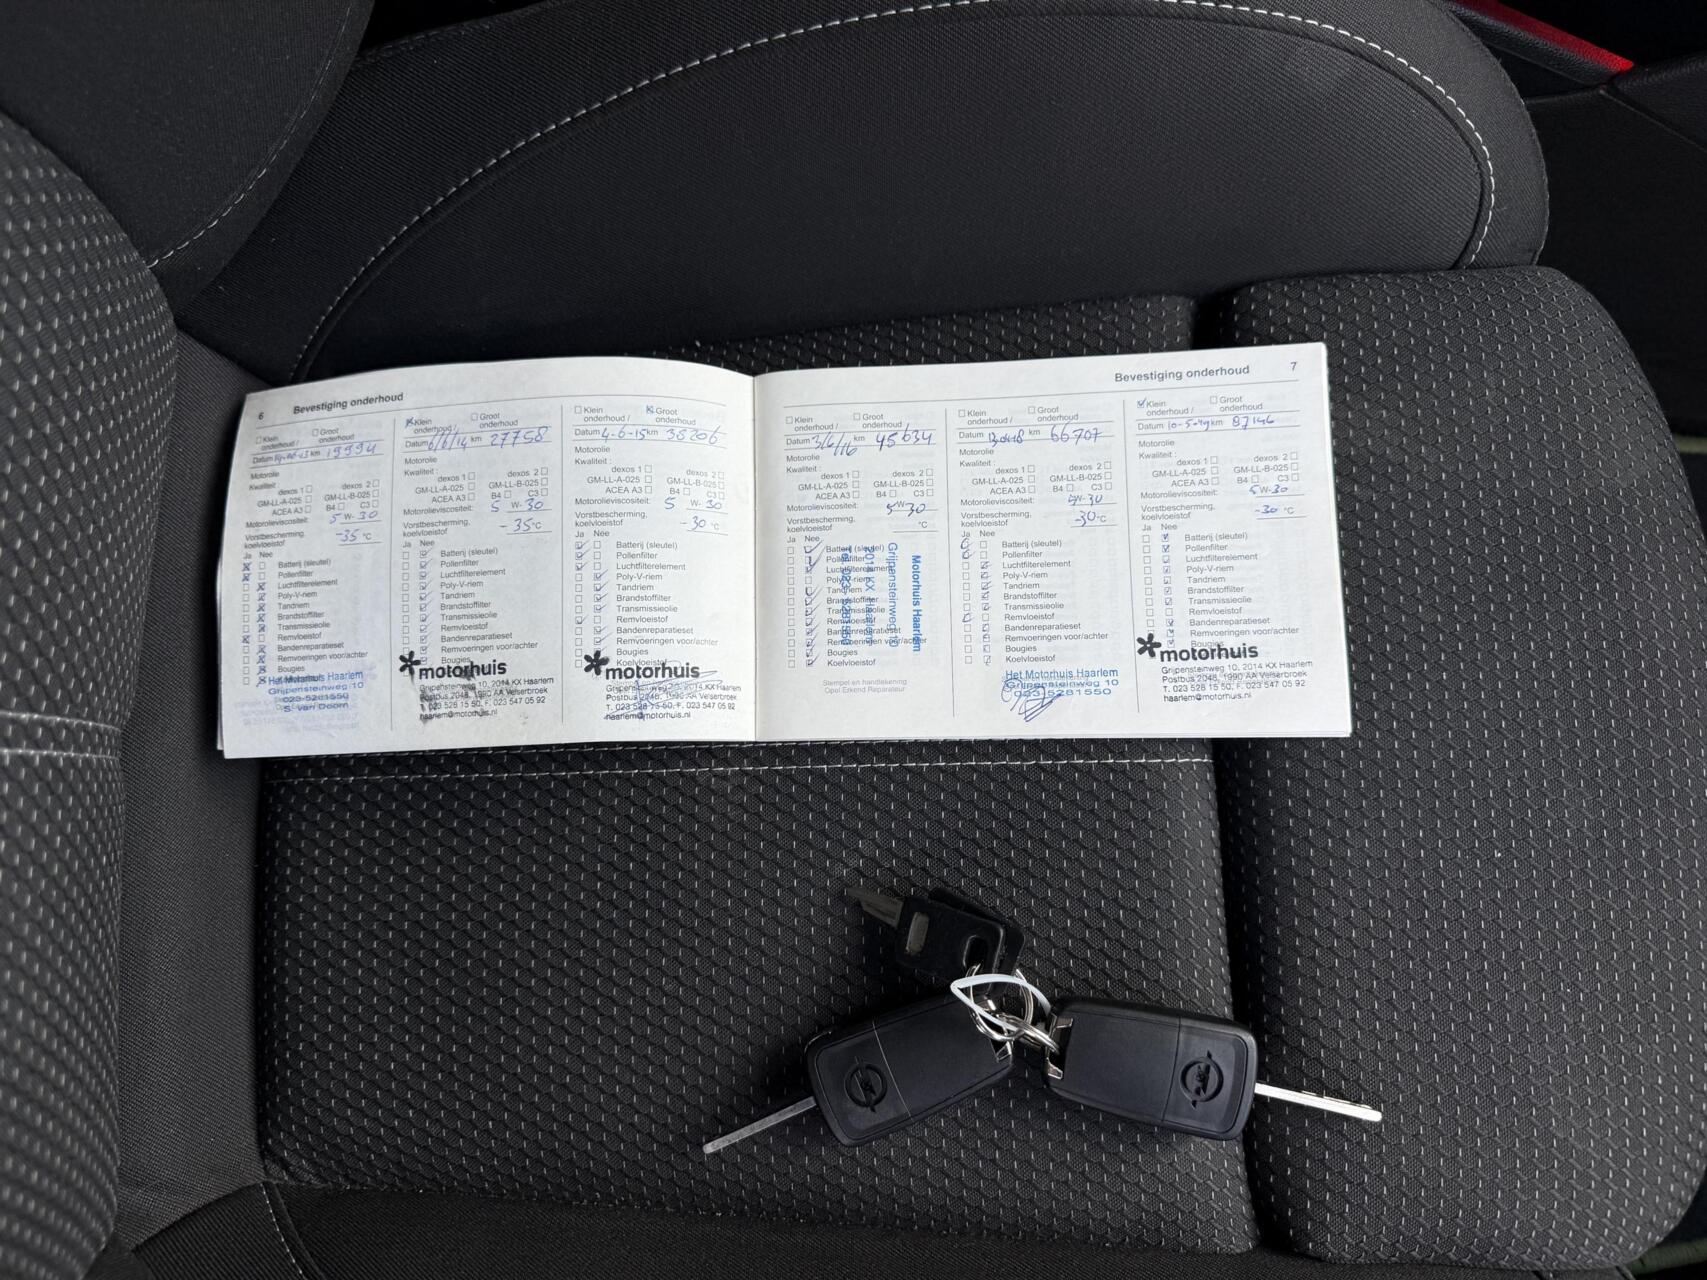 6 Bevestiging onderhoud
Klein onderhoud / Groot onderhoud
Datum km 19994
Motorolie
Kwaliteit :
dexos 1 dexos 2
GM-LL-A-025 GM-LL-B-025
ACEA A3 B4 C3
Motorolieviscositeit: 5 W- 30
Vorstbescherming, koelvloeistof -35 °C
Ja Nee
Batterij (sleutel)
Pollenfilter
Luchtfilterelement
Poly-V-riem
Tandriem
Brandstoffilter
Transmissieolie
Remvloeistof
Bandenreparatieset
Remvoeringen voor/achter
Bougies
Het Motorhuis Haarlem
Grijpensteinweg 10
023-5281550
S. van Doorn
Klein onderhoud / Groot onderhoud
Datum 6/6/14 km 27758
Motorolie
Kwaliteit :
dexos 1 dexos 2
GM-LL-A-025 GM-LL-B-025
ACEA A3 B4 C3
Motorolieviscositeit: 5 W- 30
Vorstbescherming, koelvloeistof -35 °C
Ja Nee
Batterij (sleutel)
Pollenfilter
Luchtfilterelement
Poly-V-riem
Tandriem
Brandstoffilter
Transmissieolie
Remvloeistof
Bandenreparatieset
Remvoeringen voor/achter
Bougies
motorhuis
Grijpensteinweg 10, 2014 KX Haarlem
Postbus 2048, 1990 AA Velserbroek
T. 023 528 15 50, F. 023 547 05 92
haarlem@motorhuis.nl
Klein onderhoud / Groot onderhoud
Datum 4-6-15 km 38206
Motorolie
Kwaliteit :
dexos 1 dexos 2
GM-LL-A-025 GM-LL-B-025
ACEA A3 B4 C3
Motorolieviscositeit: 5 W- 30
Vorstbescherming, koelvloeistof -30 °C
Ja Nee
Batterij (sleutel)
Pollenfilter
Luchtfilterelement
Poly-V-riem
Tandriem
Brandstoffilter
Transmissieolie
Remvloeistof
Bandenreparatieset
Remvoeringen voor/achter
Bougies
Koelvloeistof
motorhuis
Grijpensteinweg 10, 2014 KX Haarlem
Postbus 2048, 1990 AA Velserbroek
T. 023 528 15 50, F. 023 547 05 92
haarlem@motorhuis.nl
Bevestiging onderhoud 7
Klein onderhoud / Groot onderhoud
Datum 3/6/16 km 45634
Motorolie
Kwaliteit :
dexos 1 dexos 2
GM-LL-A-025 GM-LL-B-025
ACEA A3 B4 C3
Motorolieviscositeit: 5 W- 30
Vorstbescherming, koelvloeistof °C
Ja Nee
Batterij (sleutel)
Pollenfilter
Luchtfilterelement
Poly-V-riem
Tandriem
Brandstoffilter
Transmissieolie
Remvloeistof
Bandenreparatieset
Remvoeringen voor/achter
Bougies
Koelvloeistof
Motorhuis Haarlem
Grijpensteinweg 10
2014 KX Haarlem
Stempel en handtekening
Opel Erkend Reparateur
Klein onderhoud / Groot onderhoud
Datum km 66707
Motorolie
Kwaliteit :
dexos 1 dexos 2
GM-LL-A-025 GM-LL-B-025
ACEA A3 B4 C3
Motorolieviscositeit: 5W-30
Vorstbescherming, koelvloeistof -30 °C
Ja Nee
Batterij (sleutel)
Pollenfilter
Luchtfilterelement
Poly-V-riem
Tandriem
Brandstoffilter
Transmissieolie
Remvloeistof
Bandenreparatieset
Remvoeringen voor/achter
Bougies
Koelvloeistof
Het Motorhuis Haarlem
Grijpensteinweg 10
023-5281550
Klein onderhoud / Groot onderhoud
Datum km 87146
Motorolie
Kwaliteit :
dexos 1 dexos 2
GM-LL-A-025 GM-LL-B-025
ACEA A3 B4 C3
Motorolieviscositeit: 5 W-30
Vorstbescherming, koelvloeistof -30 °C
Ja Nee
Batterij (sleutel)
Pollenfilter
Luchtfilterelement
Poly-V-riem
Tandriem
Brandstoffilter
Transmissieolie
Remvloeistof
Bandenreparatieset
Remvoeringen voor/achter
Bougies
motorhuis
Grijpensteinweg 10, 2014 KX Haarlem
Postbus 2048, 1990 AA Velserbroek
T. 023 528 15 50, F. 023 547 05 92
haarlem@motorhuis.nl